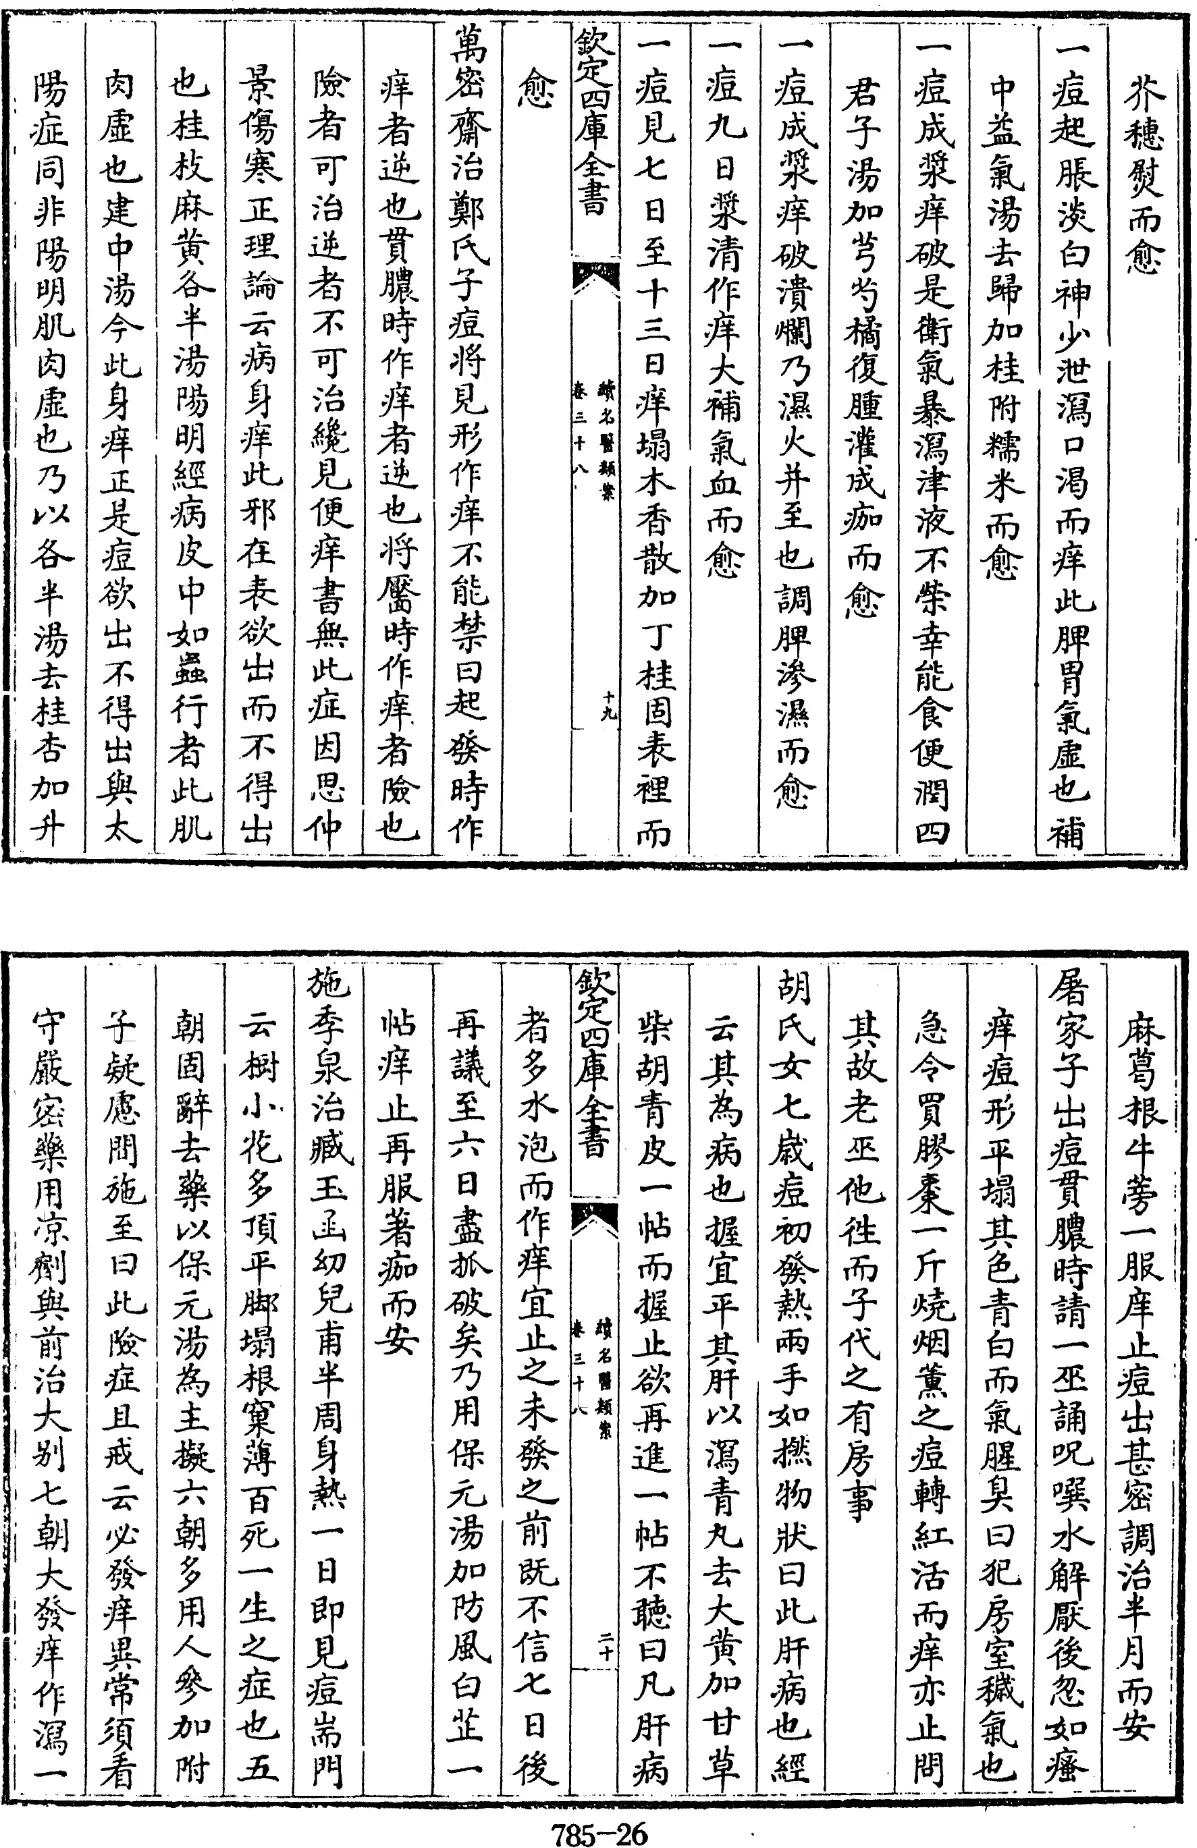 芥穗熨而愈
一痘起脹淡白神少泄瀉口渴而痒此脾胃氣虛也補
中益氣湯去歸加桂附糯米而愈
一痘成漿痒破是衛氣暴瀉津液不榮幸能食便潤四
君子湯加芎芍橘復腫灌成痂而愈
一痘成漿痒破潰爛乃濕火并至也調脾滲濕而愈
一痘九日漿清作痒大補氣血而愈
一痘見七日至十三日痒塌木香散加丁桂固表裡而
欽定四庫全書
續名醫類案
卷三十八
十九
愈
萬密齋治鄭氏子痘將見形作痒不能禁曰起發時作
痒者逆也貫膿時作痒者逆也將靨時作痒者險也
險者可治逆者不可治纔見便痒書無此症因思仲
景傷寒正理論云病身痒此邪在表欲出而不得出
也桂枝麻黄各半湯陽明經病皮中如蟲行者此肌
肉虛也建中湯今此身痒正是痘欲出不得出與太
陽症同非陽明肌肉虛也乃以各半湯去桂杏加升
麻葛根牛蒡一服庠止痘出甚密調治半月而安
屠家子出痘貫膿時請一巫誦呪噀水解厭後忽如瘙
痒痘形平塌其色青白而氣腥臭曰犯房室穢氣也
急令買膠棗一斤燒烟薰之痘轉紅活而痒亦止問
其故老巫他徃而子代之有房事
胡氏女七歲痘初發熱兩手如撚物狀曰此肝病也經
云其為病也握宜平其肝以瀉青丸去大黄加甘草
柴胡青皮一帖而握止欲再進一帖不聽曰凡肝病
欽定四庫全書
續名醫類案
卷三十八
二十
者多水泡而作痒宜止之未發之前既不信七日後
再議至六日盡抓破矣乃用保元湯加防風白芷一
帖痒止再服著痂而安
施季泉治臧玉函幼兒甫半周身熱一日即見痘耑門
云樹小花多頂平脚塌根窠薄百死一生之症也五
朝固辭去藥以保元湯為主擬六朝多用人參加附
子疑慮間施至曰此險症且戒云必發痒異常須看
守嚴密藥用凉劑與前治大别七朝大發痒作瀉一
785-26